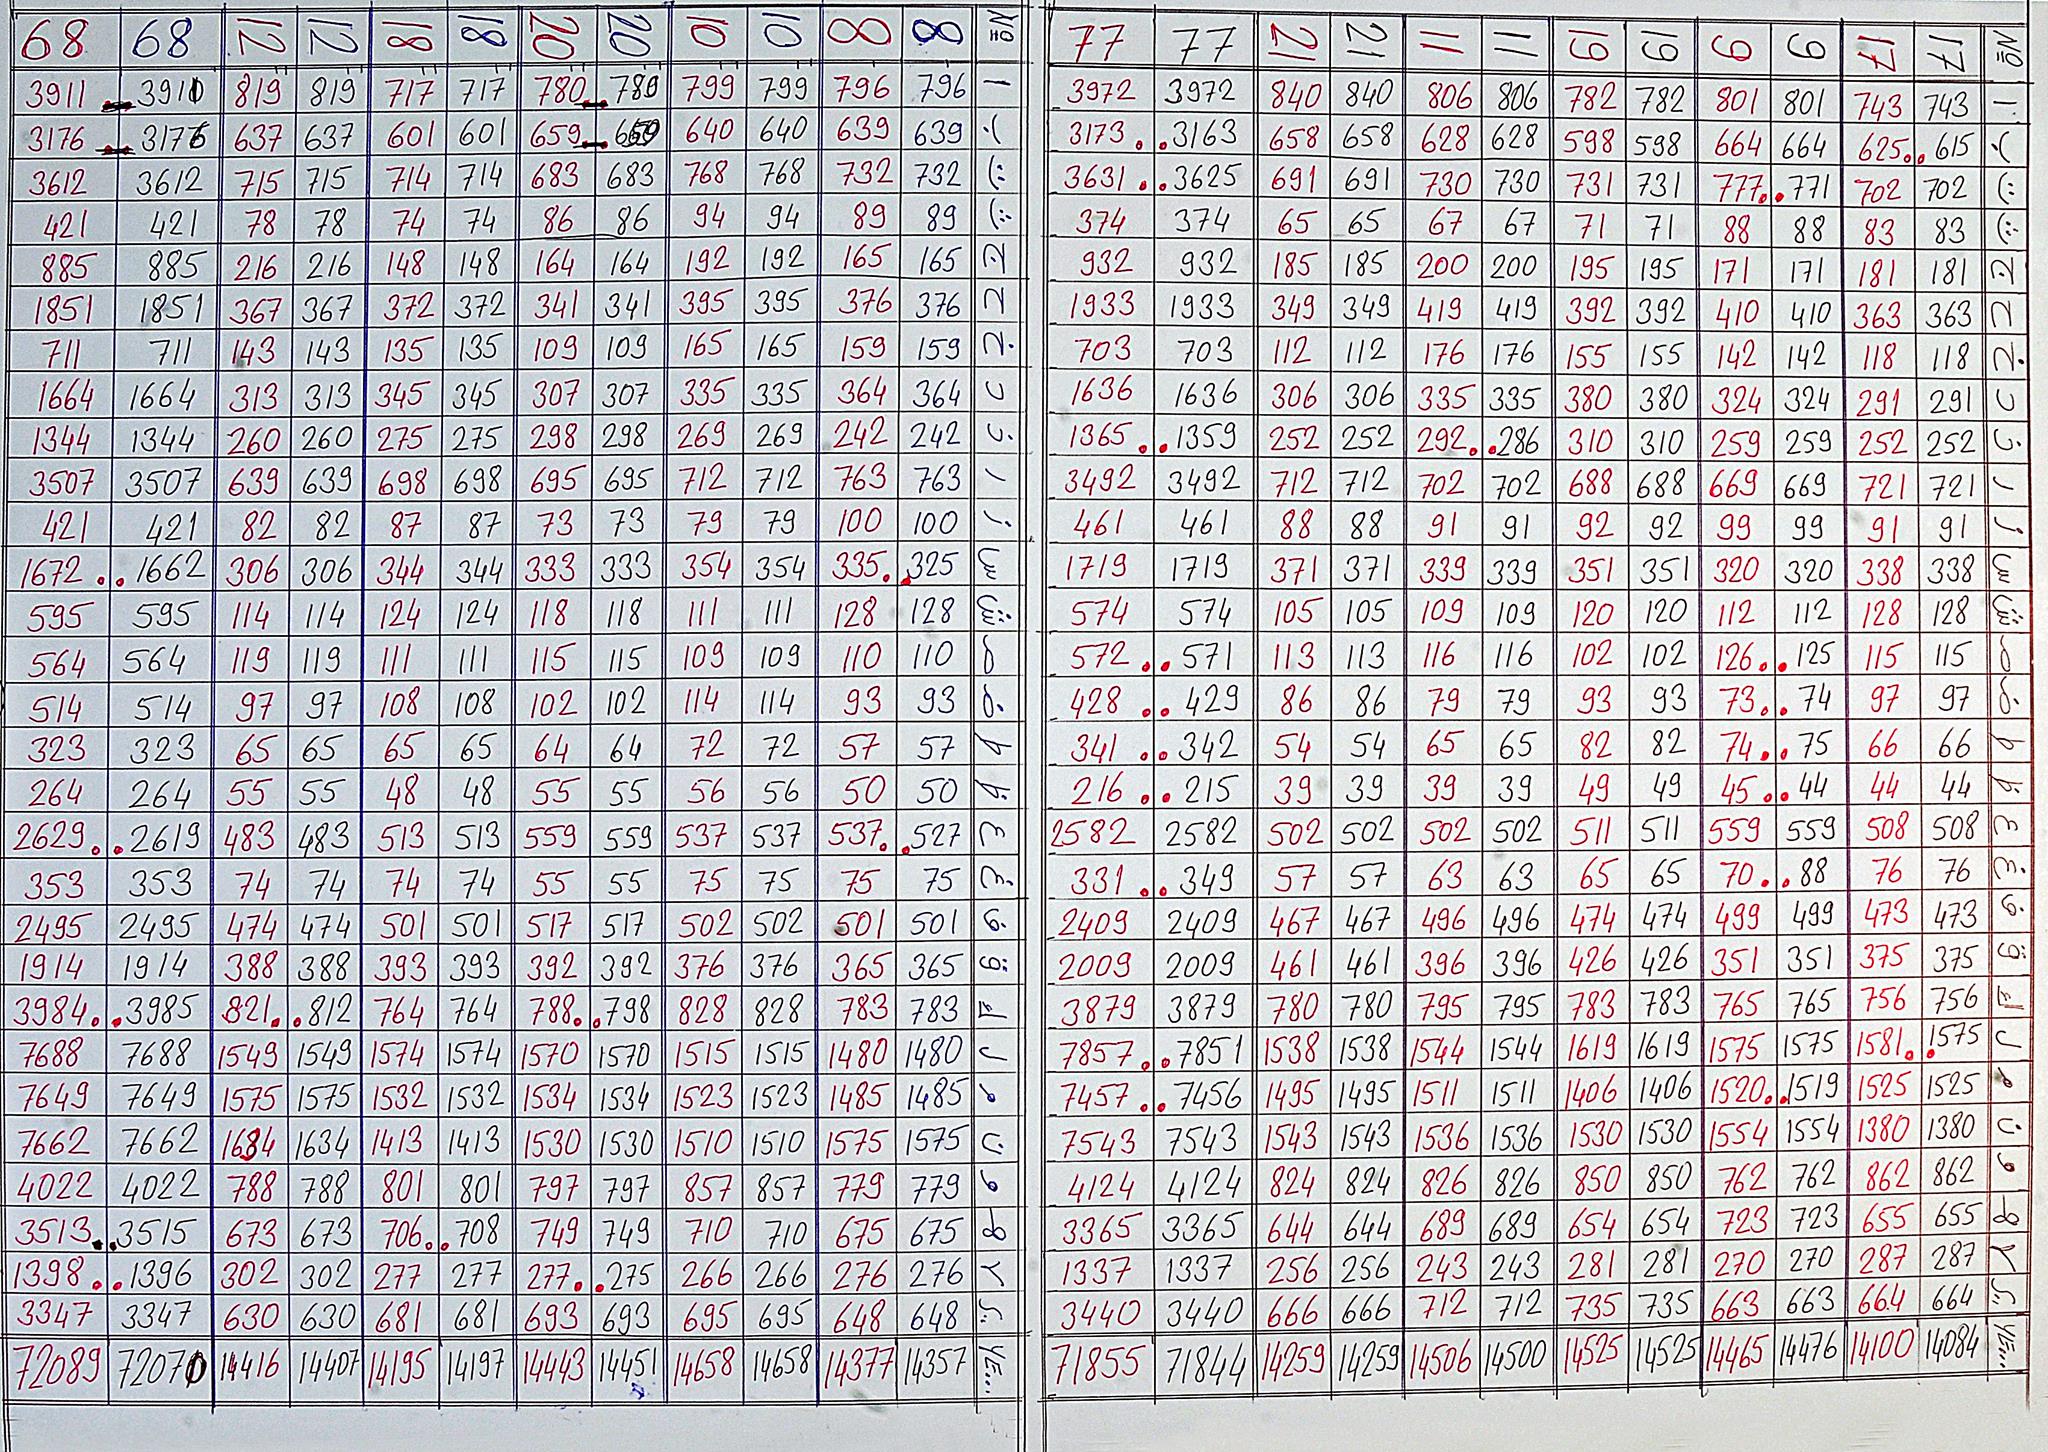 68 68 12 12 18 18 20 20 10 10 8 8 № 77 77 21 21 11 11 19 19 9 9 17 17 №
3911 3910 819 819 717 717 780 780 799 799 796 796 ا 3972 3972 840 840 806 806 782 782 801 801 743 743 ا
3176 3176 637 637 601 601 659 659 640 640 639 639 ب 3173 .. 3163 658 658 628 628 598 598 664 664 625 .. 615 ب
3612 3612 715 715 714 714 683 683 768 768 732 732 ت 3631 .. 3625 691 691 730 730 731 731 777 .. 771 702 702 ت
421 421 78 78 74 74 86 86 94 94 89 89 ث 374 374 65 65 67 67 71 71 88 88 83 83 ث
885 885 216 216 148 148 164 164 192 192 165 165 ج 932 932 185 185 200 200 195 195 171 171 181 181 ج
1851 1851 367 367 372 372 341 341 395 395 376 376 ح 1933 1933 349 349 419 419 392 392 410 410 363 363 ح
711 711 143 143 135 135 109 109 165 165 159 159 خ 703 703 112 112 176 176 155 155 142 142 118 118 خ
1664 1664 313 313 345 345 307 307 335 335 364 364 د 1636 1636 306 306 335 335 380 380 324 324 291 291 د
1344 1344 260 260 275 275 298 298 269 269 242 242 ذ 1365 .. 1359 252 252 292 .. 286 310 310 259 259 252 252 ذ
3507 3507 639 639 698 698 695 695 712 712 763 763 ر 3492 3492 712 712 702 702 688 688 669 669 721 721 ر
421 421 82 82 87 87 73 73 79 79 100 100 ز 461 461 88 88 91 91 92 92 99 99 91 91 ز
1672 .. 1662 306 306 344 344 333 333 354 354 335 .. 325 س 1719 1719 371 371 339 339 351 351 320 320 338 338 س
595 595 114 114 124 124 118 118 111 111 128 128 ش 574 574 105 105 109 109 120 120 112 112 128 128 ش
564 564 119 119 111 111 115 115 109 109 110 110 ص 572 .. 571 113 113 116 116 102 102 126 .. 125 115 115 ص
514 514 97 97 108 108 102 102 114 114 93 93 ض 428 .. 429 86 86 79 79 93 93 73 .. 74 97 97 ض
323 323 65 65 65 65 64 64 72 72 57 57 ط 341 .. 342 54 54 65 65 82 82 74 .. 75 66 66 ط
264 264 55 55 48 48 55 55 56 56 50 50 ظ 216 .. 215 39 39 39 39 49 49 45 .. 44 44 44 ظ
2629 .. 2619 483 483 513 513 559 559 537 537 537 .. 527 ع 2582 2582 502 502 502 502 511 511 559 559 508 508 ع
353 353 74 74 74 74 55 55 75 75 75 75 غ 331 .. 349 57 57 63 63 65 65 70 .. 88 76 76 غ
2495 2495 474 474 501 501 517 517 502 502 501 501 ف 2409 2409 467 467 496 496 474 474 499 499 473 473 ف
1914 1914 388 388 393 393 392 392 376 376 365 365 ق 2009 2009 461 461 396 396 426 426 351 351 375 375 ق
3984 .. 3985 821 .. 812 764 764 788 .. 798 828 828 783 783 ك 3879 3879 780 780 795 795 783 783 765 765 756 756 ك
7688 7688 1549 1549 1574 1574 1570 1570 1515 1515 1480 1480 ل 7857 .. 7851 1538 1538 1544 1544 1619 1619 1575 1575 1581 .. 1575 ل
7649 7649 1575 1575 1532 1532 1534 1534 1523 1523 1485 1485 م 7457 .. 7456 1495 1495 1511 1511 1406 1406 1520 .. 1519 1525 1525 م
7662 7662 1634 1634 1413 1413 1530 1530 1510 1510 1575 1575 ن 7543 7543 1543 1543 1536 1536 1530 1530 1554 1554 1380 1380 ن
4022 4022 788 788 801 801 797 797 857 857 779 779 و 4124 4124 824 824 826 826 850 850 762 762 862 862 و
3513 .. 3515 673 673 706 .. 708 749 749 710 710 675 675 ه 3365 3365 644 644 689 689 654 654 723 723 655 655 ه
1398 .. 1396 302 302 277 277 277 .. 275 266 266 276 276 لا 1337 1337 256 256 243 243 281 281 270 270 287 287 لا
3347 3347 630 630 681 681 693 693 695 695 648 648 ي 3440 3440 666 666 712 712 735 735 663 663 664 664 ي
72089 72070 14416 14407 14195 14197 14443 14451 14658 14658 14377 14357 YE... 71855 71844 14259 14259 14506 14500 14525 14525 14465 14476 14100 14084 YE...